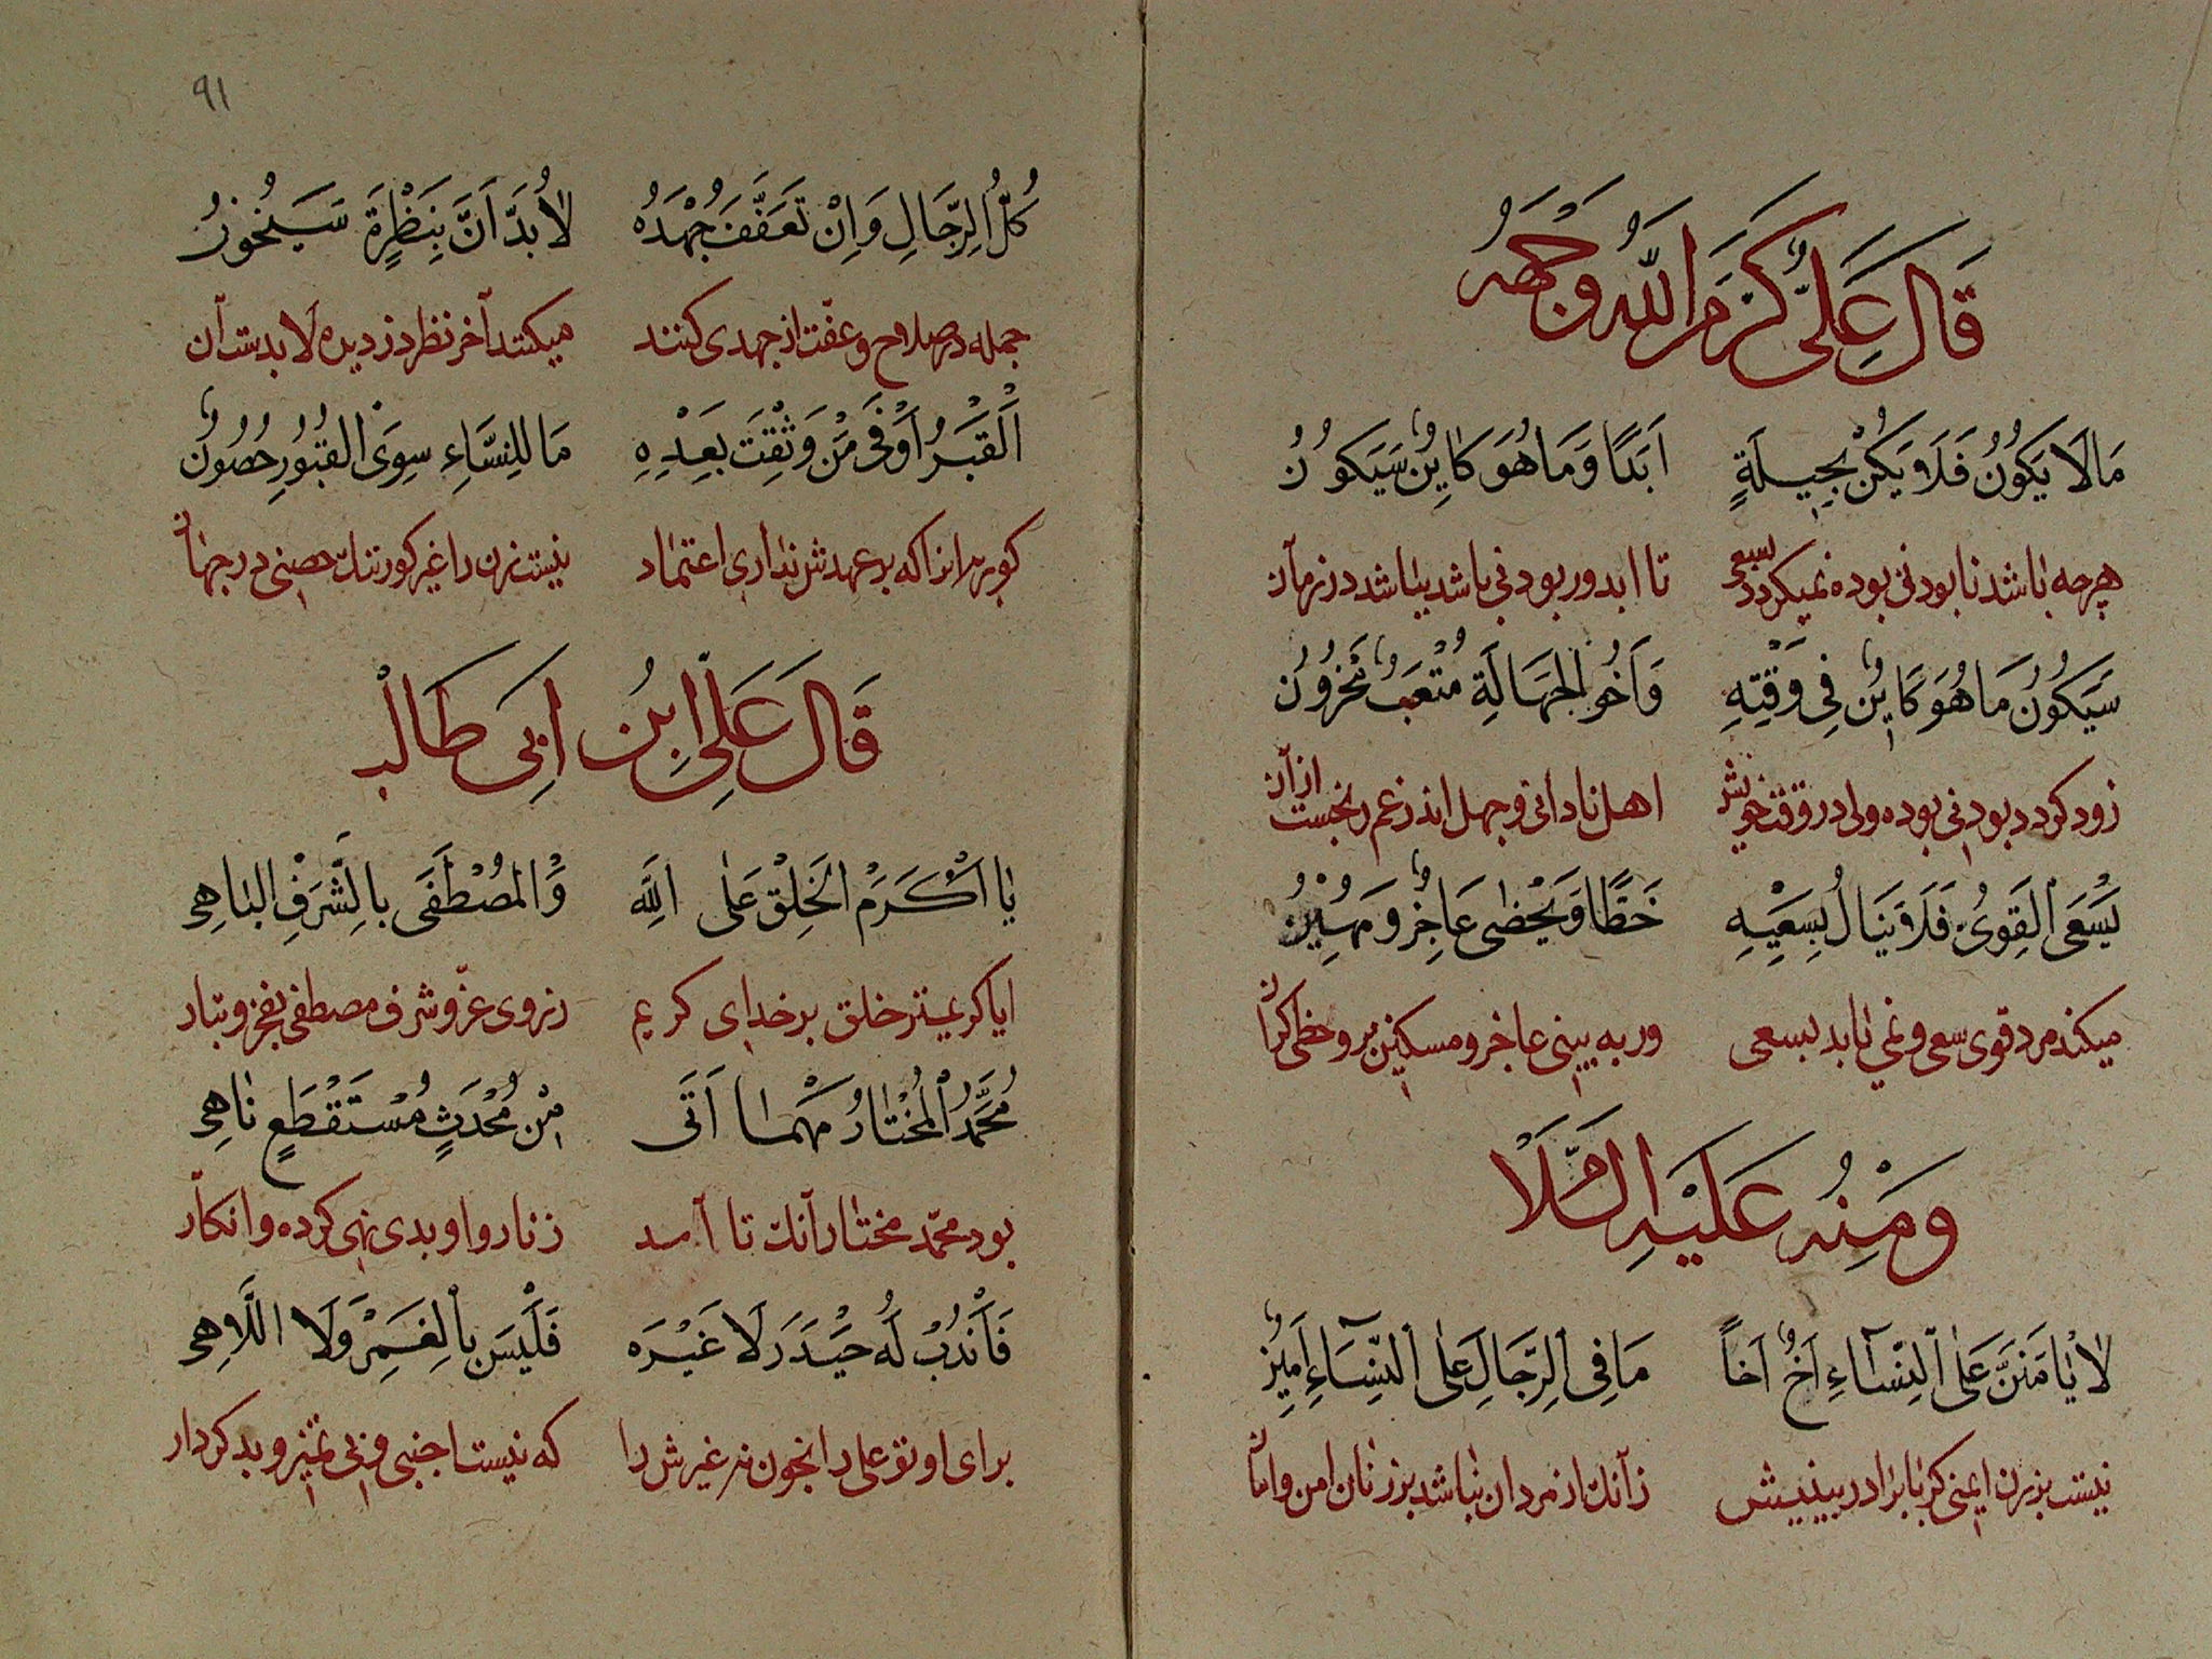 قَالَ عَلِيٌّ كَرَّمَ اللّٰهُ وَجْهَهُ
مَا لَا يَكُوْنُ فَلَا يَكُنْ بِحِيلَةٍ اَبَدًا وَمَا هُوَ كَايِنٌ سَيَكُوْنُ
هرچه باشد نابودنی بوده نمیکردد بسعی تا ابد ور بودنی باشد بباشد در زمان
سَيَكُوْنُ مَا هُوَ كَايِنٌ فِي وَقْتِهِ وَاَخُو الْجَهَالَةِ مُتْعَبٌ مَحْزُوْنُ
زود کردد بودنی بوده ولی در وقت خویش اهل نادانی و جهل اندر غم رنجست ازان
يَسْعَى الْقَوِيُّ فَلَا يَنَالُ بِسَعْيِهِ حَظًّا وَيَحْظٰى عَاجِزٌ وَمَهِيْنُ
میکند مرد قوی سعی و نمی یابد بسعی ور به بینی عاجز و مسکین برو حظی کران
وَمِنْهُ عَلَيْهِ السَّلَا
لَا يَامَنَنَّ عَلَى النِّسَآءِ اَخٌ اَخًا مَا فِي الرِّجَالِ عَلَى النِّسَآءِ اَمِيْنُ
نیست بر زن ایمنی کر با برادر بینیش زآنك از مردان نباشد بر زنان امن و امان
٩١
كُلُّ الرِّجَالِ وَاِنْ تَعَفَّفَ جُهْدَهُ لَا بُدَّ اَنَّ بِنَظْرَةٍ سَيَخُوْنُ
جمله در صلاح و عفت از جهدی کنند میکنند آخر نظر دزدیده لابد ست آن
اَلْقَبْرُ اَوْفٰى مَنْ وَثِقْتَ بِعَهْدِهِ مَا لِلنِّسَاءِ سِوَى الْقُبُوْرِ حُصُوْنٌ
کور مر انرا که بر عهدش نداری اعتماد نیست زن را غیر کور تنك حصنی در جهان
قَالَ عَلِيُّ ابْنُ اَبِي طَالِبْ
يَا اَكْرَمَ الْخَلْقِ عَلَى اللّٰهِ وَالْمُصْطَفٰى بِالشَّرَفِ الْبَاهِي
ایا کریمتر خلق بر خدای کریم ز روی عز و شرف مصطفی بفخر و تبار
مُحَمَّدُ الْمُخْتَارُ مَهْمَا اَتٰى مِنْ مُحْدَثٍ مُسْتَقْطَعٍ نَاهِي
بود محمد مختار آنك تا آمد ز ناروا و بدی نهی کرده و انکار
فَانْدُبْ لَهُ حَيْدَرَ لَا غَيْرَهُ فَلَيْسَ بِالْغَمْرِ وَلَا اللَّاهِي
برای او تو علی را بخون نه غیرش را که نیست اجنبی و بی تمیز و بد کردار